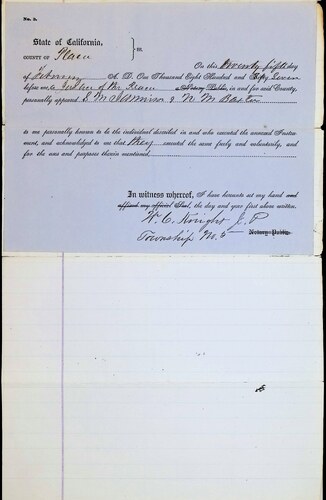 No. 2.
State of California,
COUNTY OF Placer } ss.
On this Twenty fifth day
of A. D. One Thousand Eight Hundred and Fifty Seven
before me a Justice of the Peace Notary Public, in and for said County,
personally appeared & N. M. Baxter
to me personally known to be the individual described in and who executed the annexed Instru-
ment, and acknowledged to me that they executed the same freely and voluntarily, and
for the uses and purposes therein mentioned.
In witness whereof, I have hereunto set my hand and
affixed my official Seal, the day and year first above written.
W. C. Knight J. P.
Township No. 5 Notary Public.